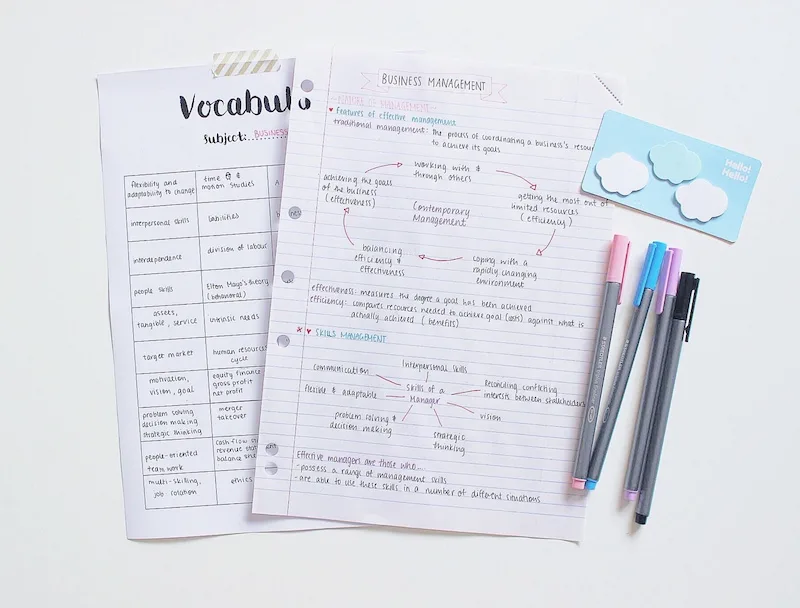 Vocabul
Subject: BUSINESS
flexibility and
adaptability to change
time &
motion studies
A
interpersonal skills
liabilities
interdependence
division of labour
people skills
Elton Mayo's theory
(behavioral)
assets,
tangible, service
intrinsic needs
target market
human resources
cycle
motivation,
vision, goal
equity finance
gross profit
net profit
problem solving
decision making
strategic thinking
merger
takeover
people-oriented
team work
cash flow
revenue
balance
multi-skilling,
job rotation
ethics
BUSINESS MANAGEMENT
MANAGEMENT
features of effective management
traditional management: the process of coordinating a business's
to achieve its goals
working with &
through others
getting the most out of
limited resources
(efficiency)
coping with a
rapidly changing
environment
balancing
efficiency &
effectiveness
achieving the goals
of the business
(effectiveness)
Contemporary
Management
effectiveness: measures the degree a goal has been achieved
efficiency: compares resources needed to achieve goal (costs) against what is
actually achieved (benefits)
SKILLS MANAGEMENT
communication
Interpersonal skills
Reconciling conflicting
interests between stakeholders
flexible & adaptable
Skills of a
Manager
vision
problem solving &
decision making
strategic
thinking
Effective managers are those who...
- possess a range of management skills
- are able to use these skills in a number of different situations
Hello!
Hello!